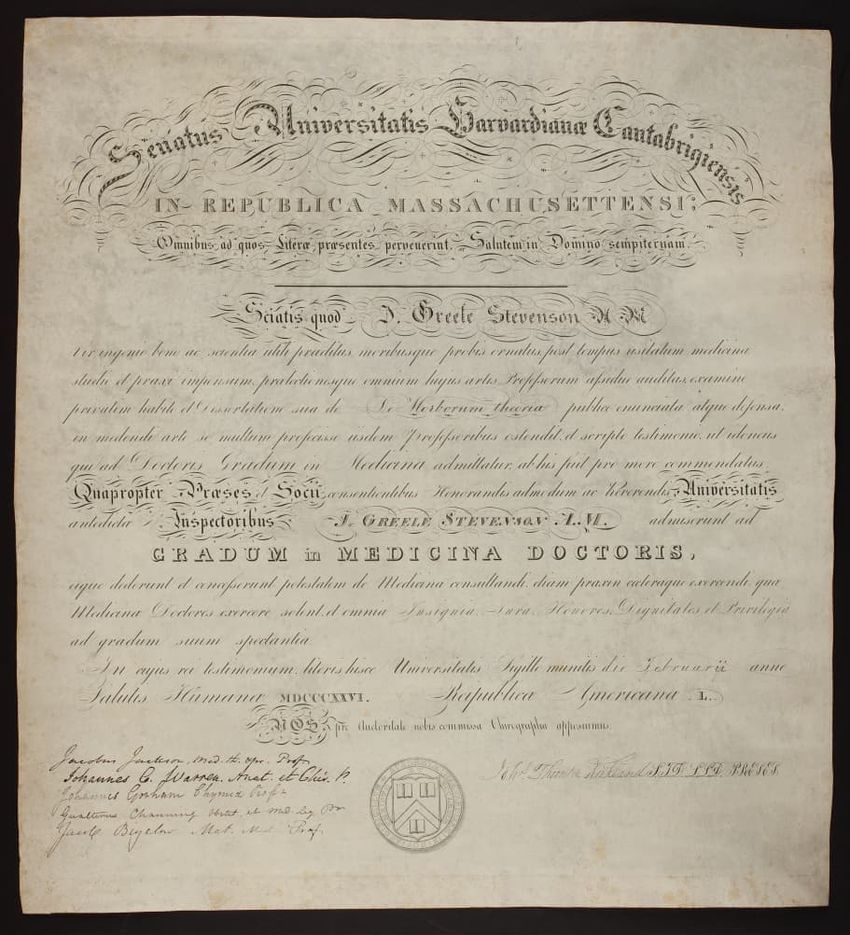 Senatus Universitatis Harvardianæ Cantabrigiensis
IN REPUBLICA MASSACHUSETTENSI;
Omnibus ad quos Literæ præsentes pervenerint, Salutem in Domino sempiternam.
Sciatis quod J. Greele Stevenson A M
Vir ingenio bono ac scientia utili præditus, moribusque probis ornatus, post tempus usitatum medicinæ
studio et praxi impensum, prælectionesque omnium hujus artis Professorum assidue auditas, examine
privatim habito et Dissertatione sua de De Morborum theoria publice enunciata atque defensa,
en medendi arte se multum profecisse iisdem Professoribus ostendit, et scripto testimonio, ut idoneus
qui ad Doctoris Gradum in Medicina admittatur, ab his fuit pro more commendatus.
Quapropter Præses et Socii, consentientibus Honorandis admodum ac Reverendis Universitatis
antedictæ Inspectoribus J. GREELE STEVENSON A.M. admiserunt ad
GRADUM in MEDICINA DOCTORIS,
eique dederunt et concesserunt potestatem de Medicina consultandi, etiam praxin cæteraque exercendi, quæ
Medicinæ Doctores exercere solent, et omnia Insignia, Jura, Honores, Dignitates et Privilegia
ad gradum suum spectantia.
In cujus rei testimonium, literis hisce Universitatis Sigillo munitis die Februarii anno
Salutis Humanæ MDCCCXXVI. Reipublicæ Americanæ L.
NOS pro Auctoritate nobis commissa Chirographa apposuimus.
Jacobus Jackson, Med. th. et pr. Prof.
Johannes C. Warren, Anat. et Chir. P.
Johannes Gorham Chymiæ Prof.
Gualterus Channing obstet. et med. leg. Pr
Jacob Bigelow Mat. Med. Prof.
Johs Thornton Kirkland S.T.D. LL.D. PRÆSES.